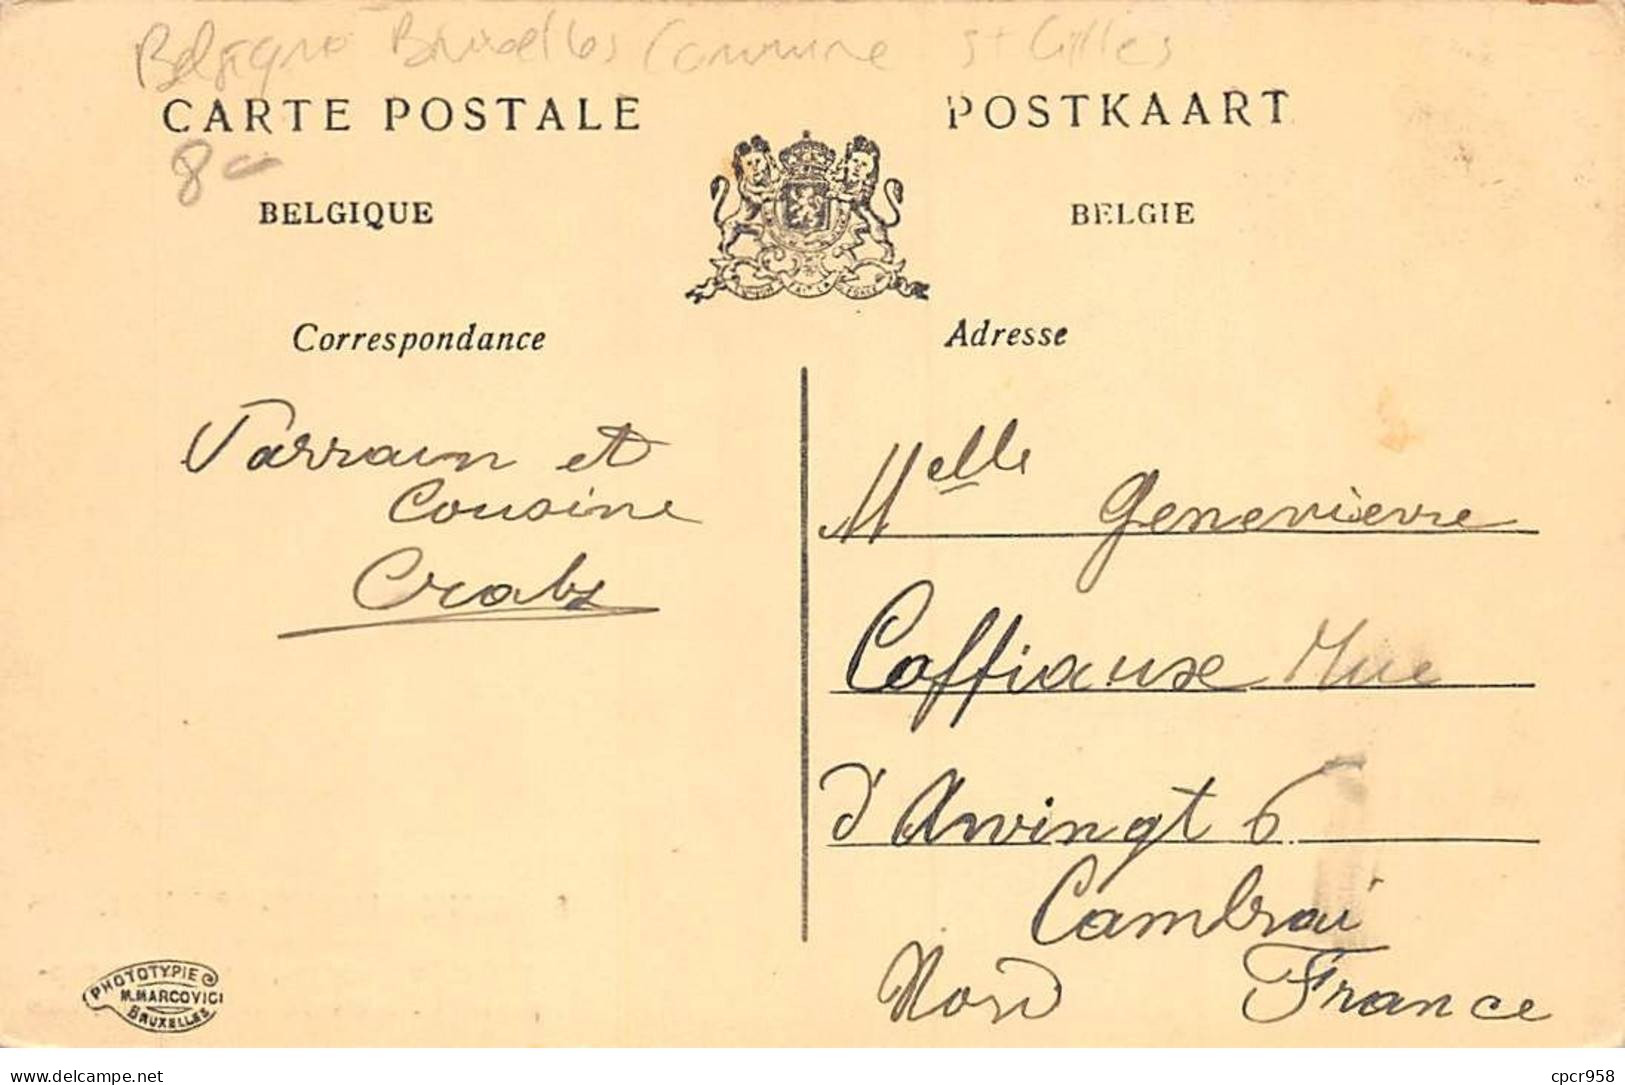 Belgique Bruxelles Commune St Gilles
CARTE POSTALE
POSTKAART
8
BELGIQUE
BELGIE
Correspondance
Adresse
Parrain et
Cousine
Crabs
Melle Genevieve
Caffiause Rue
d'Awingt 6
Cambrai
Nord France
PHOTOTYPIE
M. MARCOVICI
BRUXELLES
delcampe.net
cpcr958